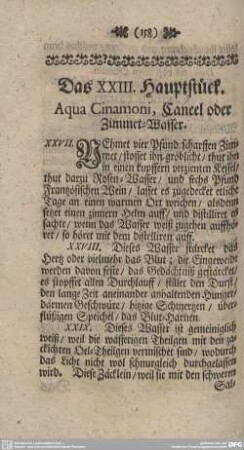 (158)
Das XXIII. Hauptstück.
Aqua Cinamoni, Caneel oder
Zimmet-Wasser.
XXVII. NEhmet vier Pfund scharffen Zim-
met / stosset ihn gröblichst / thut ihn
in einen kupffern verzienten Kessel /
thut darzu Rosen-Wasser / und sechs Pfund
Frantzösischen Wein / lasset es zugedecket etliche
Tage an einen warmen Ort weichen / alsdenn
setzet einen zinnern Helm auff / und distilliret es
sachte / wenn das Wasser weiß zugehen auffhö-
ret / so höret mit dem distilliren auff.
XXVIII. Dieses Wasser stärcket das
Hertz oder vielmehr das Blut; die Eingeweide
werden davon feste / das Gedächtniß gestärcket /
es stopffet allen Durchlauff / stillet den Durst /
den lange Zeit aneinander anhaltenden Hunger /
därmen Geschwüre / hitzige Schmertzen / über-
flüßigen Speichel / das Blut-Harnen.
XXIX. Dieses Wasser ist gemeiniglich
weiß / weil die wässerigen Theilgen mit den za-
ckichten Oel-Theilgen vermischet sind / wodurch
das Licht nicht wol schnurgleich durchgelassen
wird. Diese Zäcklein / weil sie mit den schweren
Sal-